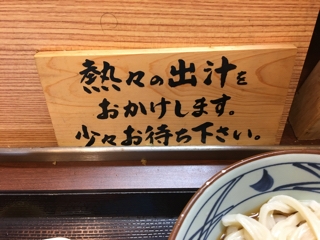 熱々の出汁を
おかけします。
少々お待ち下さい。